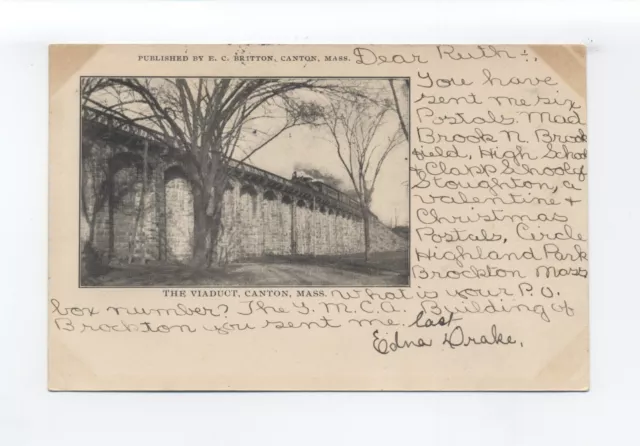 PUBLISHED BY E. C. BRITTON, CANTON, MASS.
Dear Ruth:.
You have
sent me six
Postals. Mad
Brook N. Brook
field, High School
& Clapp School of
Stoughton, a
valentine &
Christmas
Postals, Circle
Highland Park
Brockton Mass
THE VIADUCT, CANTON, MASS.
What is your P.O.
box number? The Y.M.C.A. Building of
Brockton you sent me last
Edna Drake.